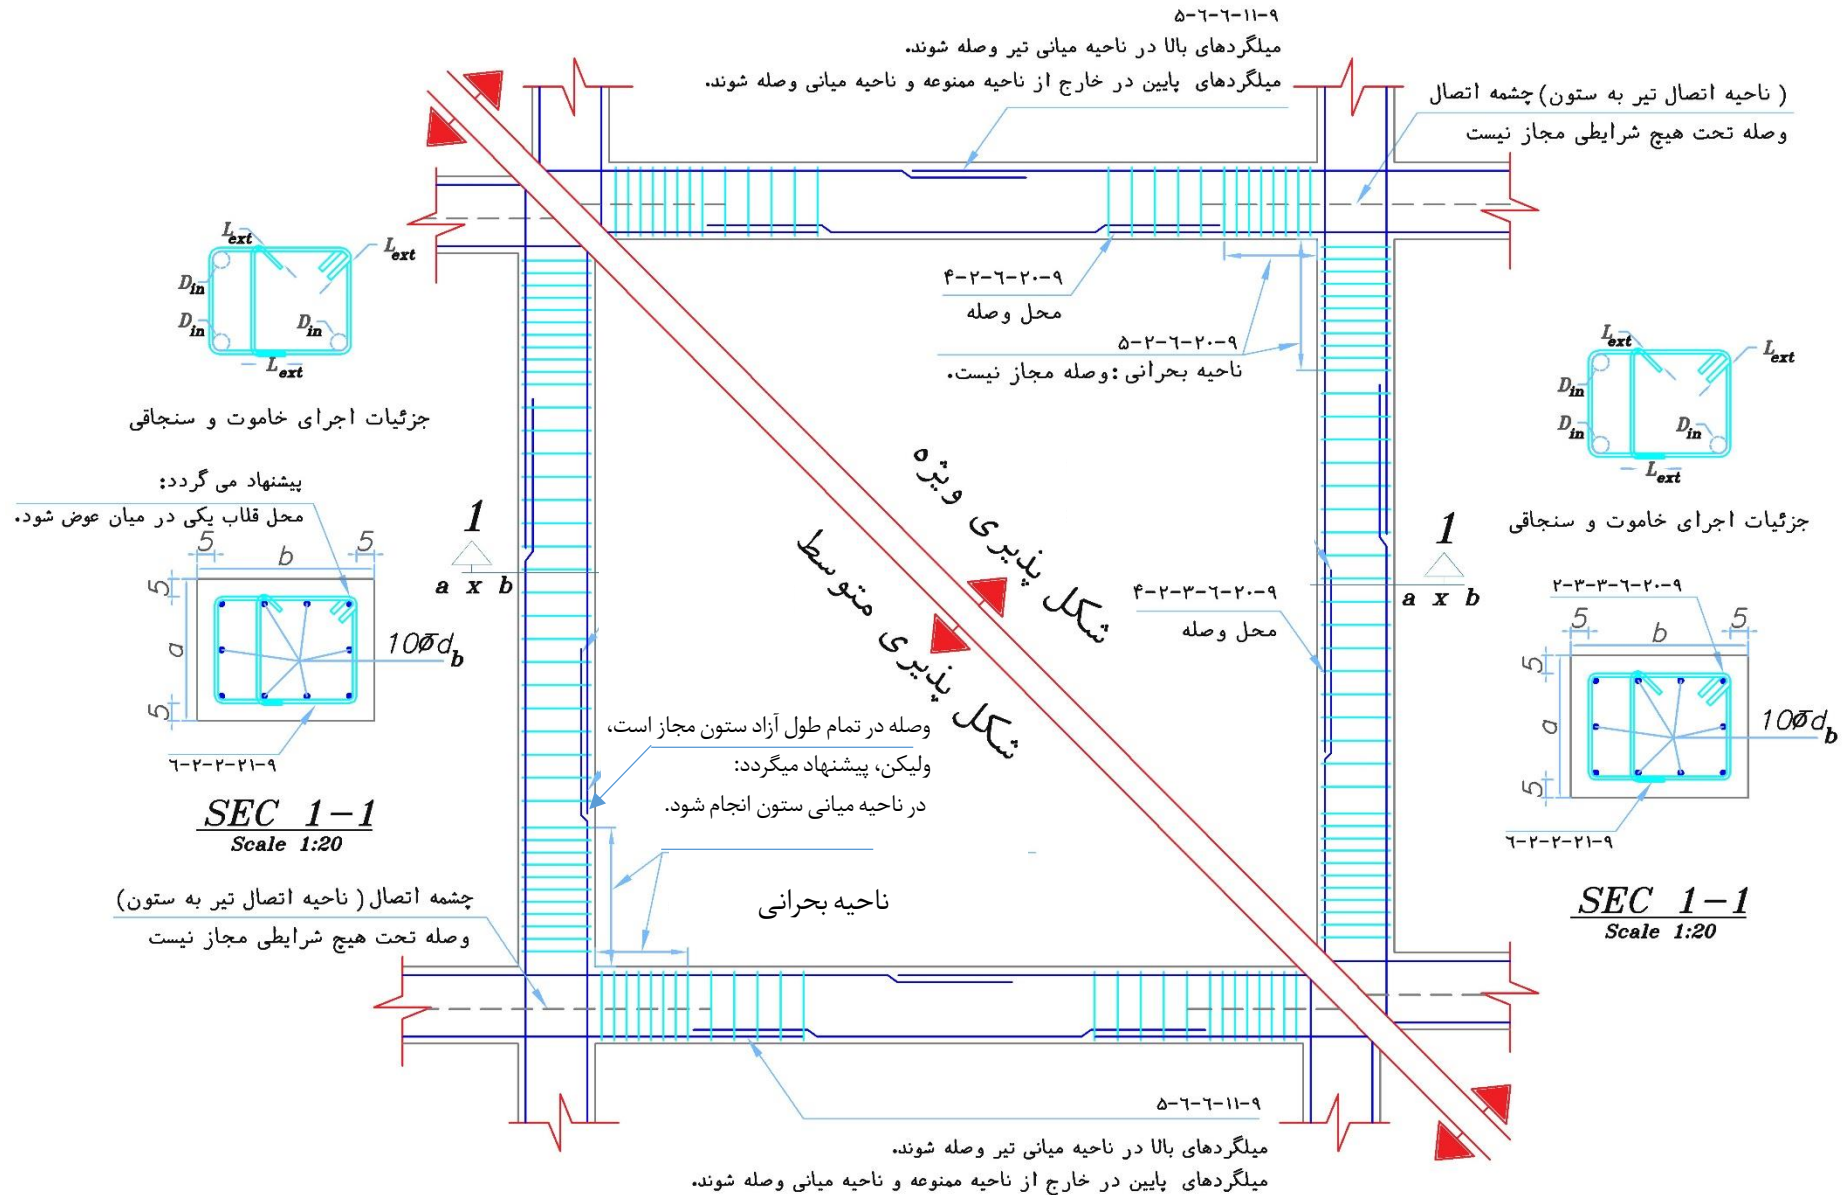 ۹-۱۱-۶-۶-۵
میلگردهای بالا در ناحیه میانی تیر وصله شوند.
میلگردهای پایین در خارج از ناحیه ممنوعه و ناحیه میانی وصله شوند.
( ناحیه اتصال تیر به ستون) چشمه اتصال
وصله تحت هیچ شرایطی مجاز نیست
L ext
L ext
D in
D in
D in
L ext
جزئیات اجرای خاموت و سنجاقی
۹-۲۰-۶-۲-۴
محل وصله
۹-۲۰-۶-۲-۵
ناحیه بحرانی : وصله مجاز نیست.
L ext
L ext
D in
D in
D in
L ext
جزئیات اجرای خاموت و سنجاقی
شکل پذیری ویژه
شکل پذیری متوسط
پیشنهاد می گردد:
محل قلاب یکی در میان عوض شود.
1
a x b
1
a x b
5 b 5
5
a
5
10Φd b
۹-۲۱-۲-۲-۶
SEC 1-1
Scale 1:20
۹-۲۰-۶-۳-۲-۴
محل وصله
۹-۲۰-۶-۳-۳-۲
5 b 5
5
a
5
10Φd b
۹-۲۱-۲-۲-۶
SEC 1-1
Scale 1:20
وصله در تمام طول آزاد ستون مجاز است،
ولیکن، پیشنهاد میگردد:
در ناحیه میانی ستون انجام شود.
ناحیه بحرانی
چشمه اتصال ( ناحیه اتصال تیر به ستون)
وصله تحت هیچ شرایطی مجاز نیست
۹-۱۱-۶-۶-۵
میلگردهای بالا در ناحیه میانی تیر وصله شوند.
میلگردهای پایین در خارج از ناحیه ممنوعه و ناحیه میانی وصله شوند.